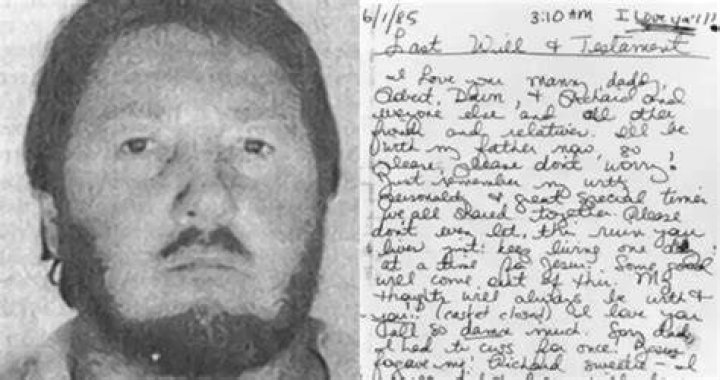 6/1/85 3:10 AM I Love ya'll!
Last Will & Testament
I Love you mamy, daddy,
Robert, Dawn, & Richard and
everyone else and all other
friends and relatives. I'll be
with my father now, so
please, please don't worry!
Just remember my witty
personality & great special times
we all shared together. Please
don't ever let this ruin your
lives just keep living one day
at a time for Jesus. Some good
will come out of this. My
thoughts will always be with &
you!! (casket closed) I love you
all so damn much. Sorry dad,
I had to cuss for once! Jesus
forgave me! Richard sweetie - I